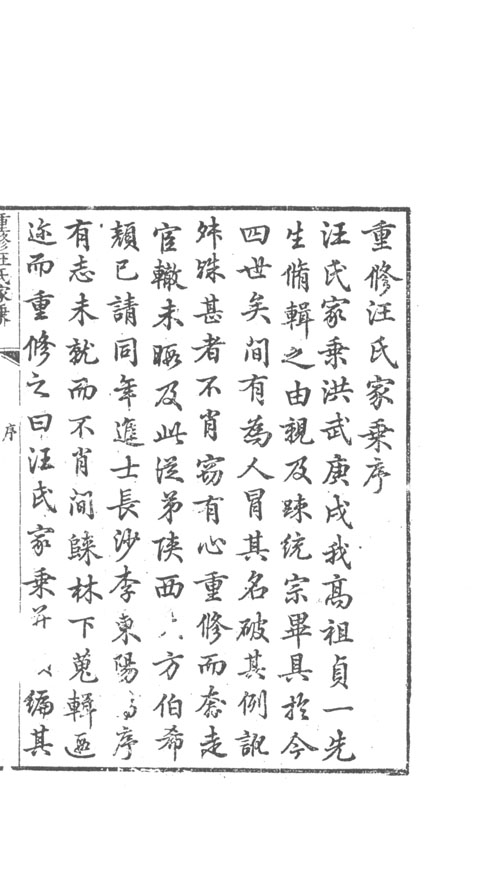 重修汪氏家乗序
汪氏家乗洪武庚戌我髙祖貞一先
生脩輯之由親及踈統宗畢具於今
四世矣間有為人冒其名破其例訛
舛殊甚者不肖窃有心重修而奔走
官轍未暇及此從弟陕西 方伯希
顔已請同年進士長沙李東陽 序
有志未就而不肖间歸林下蒐輯
迩而重修之曰汪氏家乗并 編其
重修汪氏家乗
序